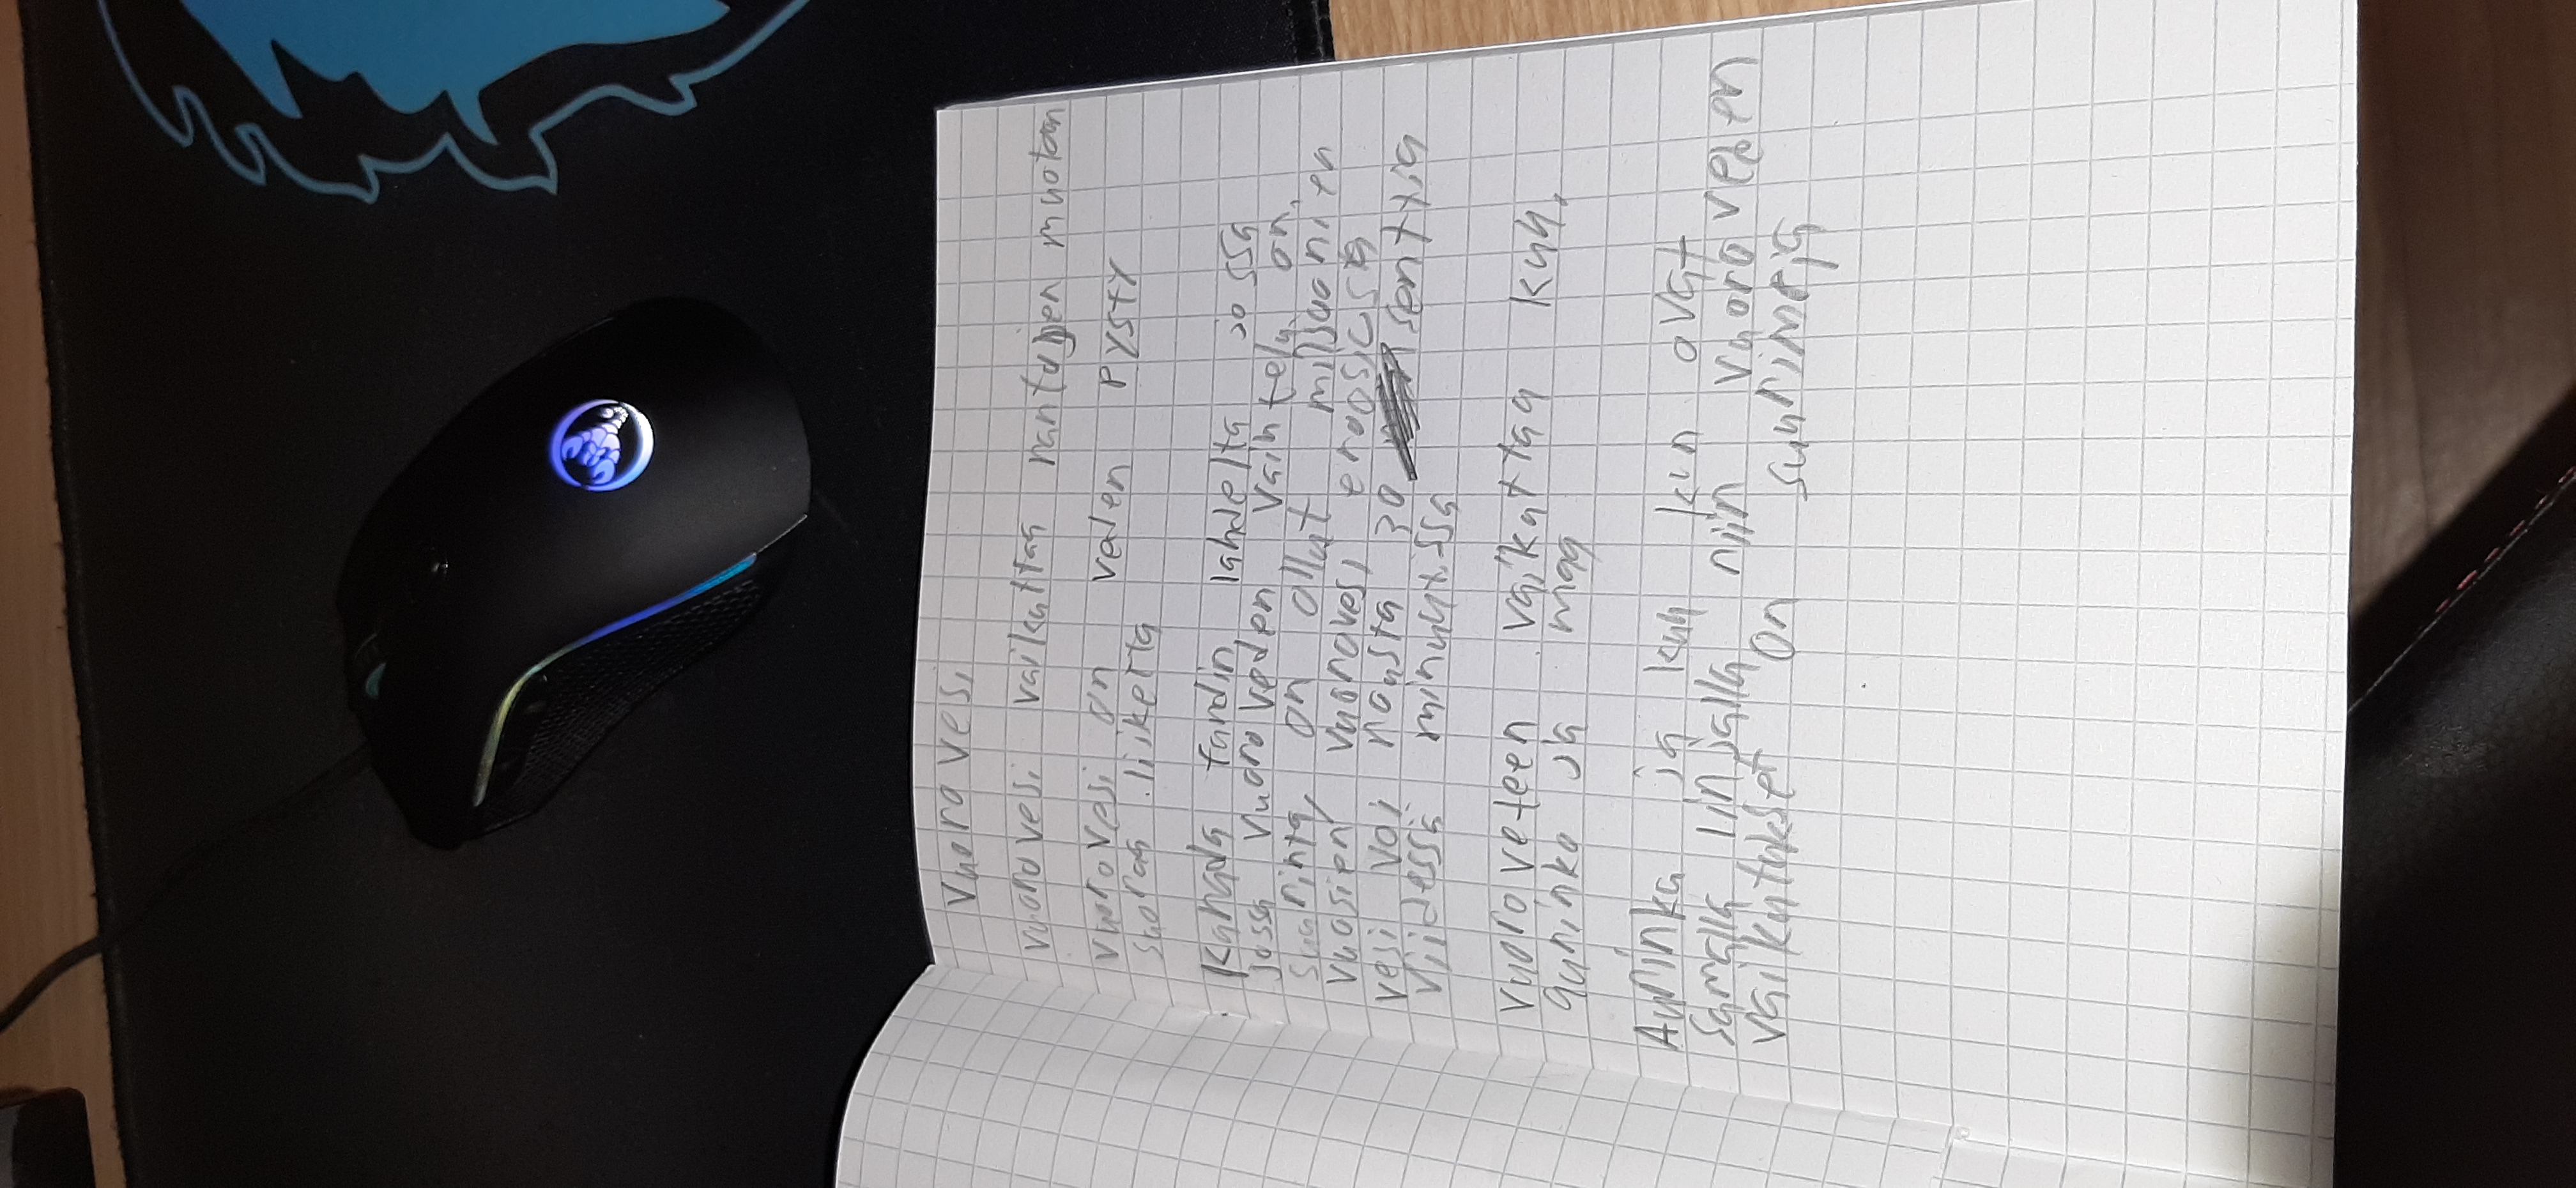 Vuorovesi
vuorovesi vaikuttaa rantujen muotoon
vuorovesi on veden pysty
suoraa liikettä
Kanada fundin lahdelta
Jossa vuoroveden vaihtely on
suurinta on ollut miljuonien
vuosien vuorovesi eroosiosta
vesi voi nousta 30 senttiä
viidessä minuutissa
vuoroveteen vaikuttaa kuu,
aurinko ja maa
Aurinko ja kuu kun ovat
samalla linjalla niin vuoroveden
vaikutukset on suurimpia